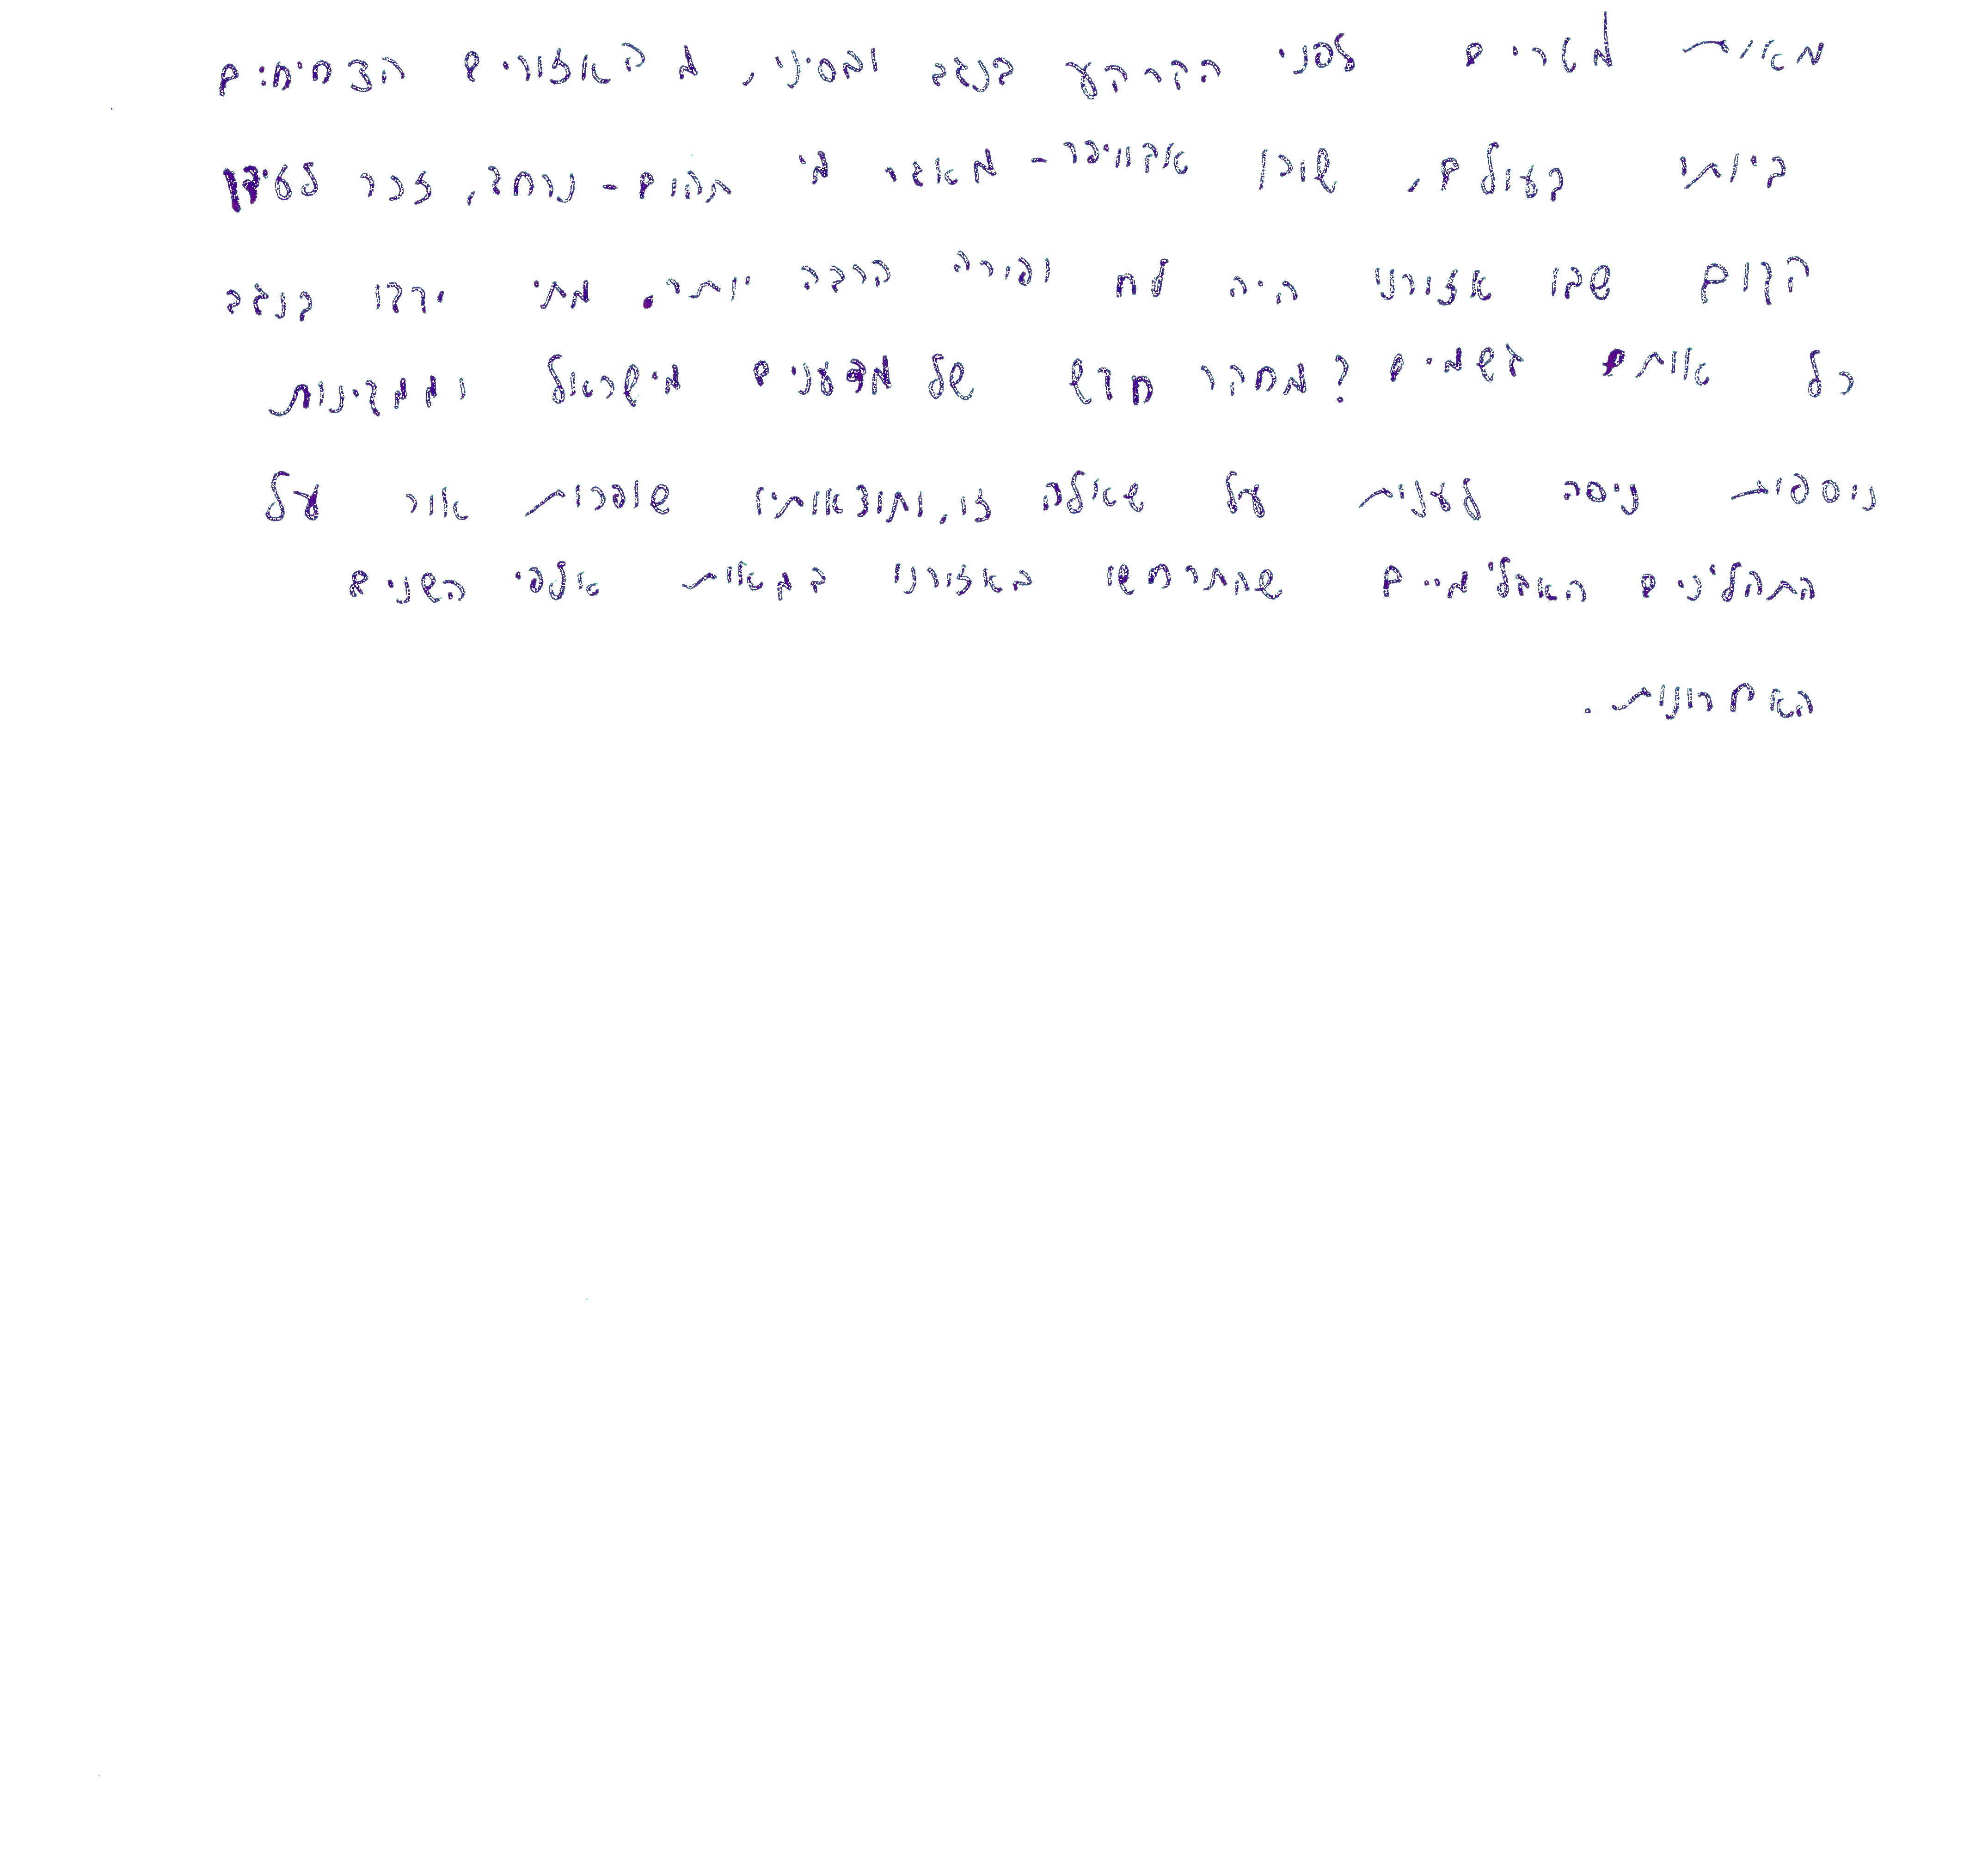 מאות מטרים לפני הקרקע בנגב ובסיני, מ האזורים הצחיחים
ביותי בעולם, שוכן אקוויפר - מאגר מי תהום - נרחב, זכר לעידן
הקום שבו אזורנו היה לח ופורה הרבה יותר. מתי ירדו בנגב
כל אותם גשמים? מחקר חדש של מדענים מישראל וממדינות
נוספות ניסה לענות על שאלה זו, ותוצאותיו שופכות אור על
התהליכים האקלימיים שהתרחשו באזורנו במאות אלפי השנים
האחרונות.